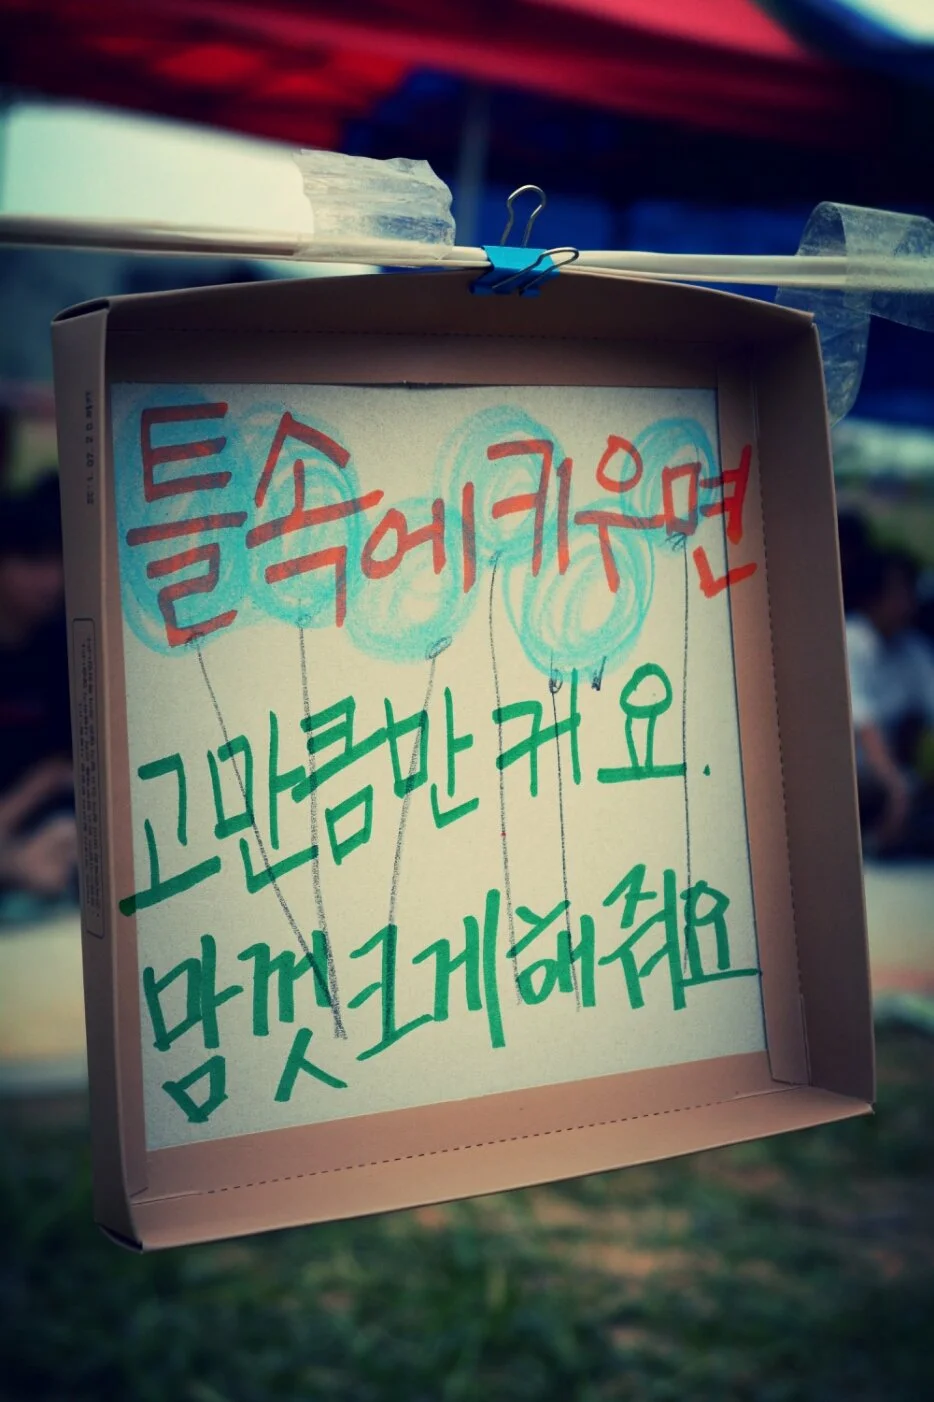 틀속에키우면
고만큼만 커요.
맘껏크게해줘요